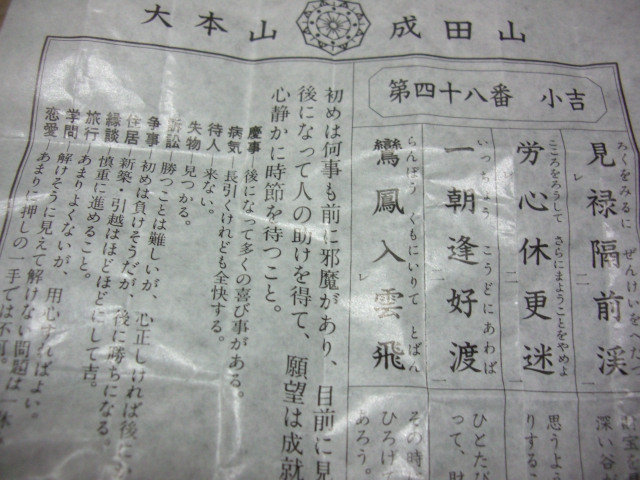 大本山 成田山
第四十八番 小吉
ろくをみるに ぜんけ をへ
見禄隔前渓
こころをろうして さらにまようことをやめよ
労心休更迷
いっちょう こうどにあわば
一朝逢好渡
らんぽう くもにいりて とばん
鸞鳳入雲飛
深い谷が
思うよう
りするこ
ひとたび
って、財
その時
ひろげ
あろう。
初めは何事も前に邪魔があり、目前に見
後になって人の助けを得て、願望は成就
心静かに時節を待つこと。
慶事―後になって多くの喜び事がある。
病気―長引くけれども全快する。
待人―来ない。
失物―見つかる。
訴訟―勝つことは難しいが、心正しければ後に
争事―初めは負けそうだが、後に勝ちになる。
住居―新築・引越はほどほどにして吉。
縁談―慎重に進めること。
旅行―あまりよくないが、用心すればよい。
学問―解けそうに見えて解けない問題は一
恋愛―あまりに押しの一手では不可。